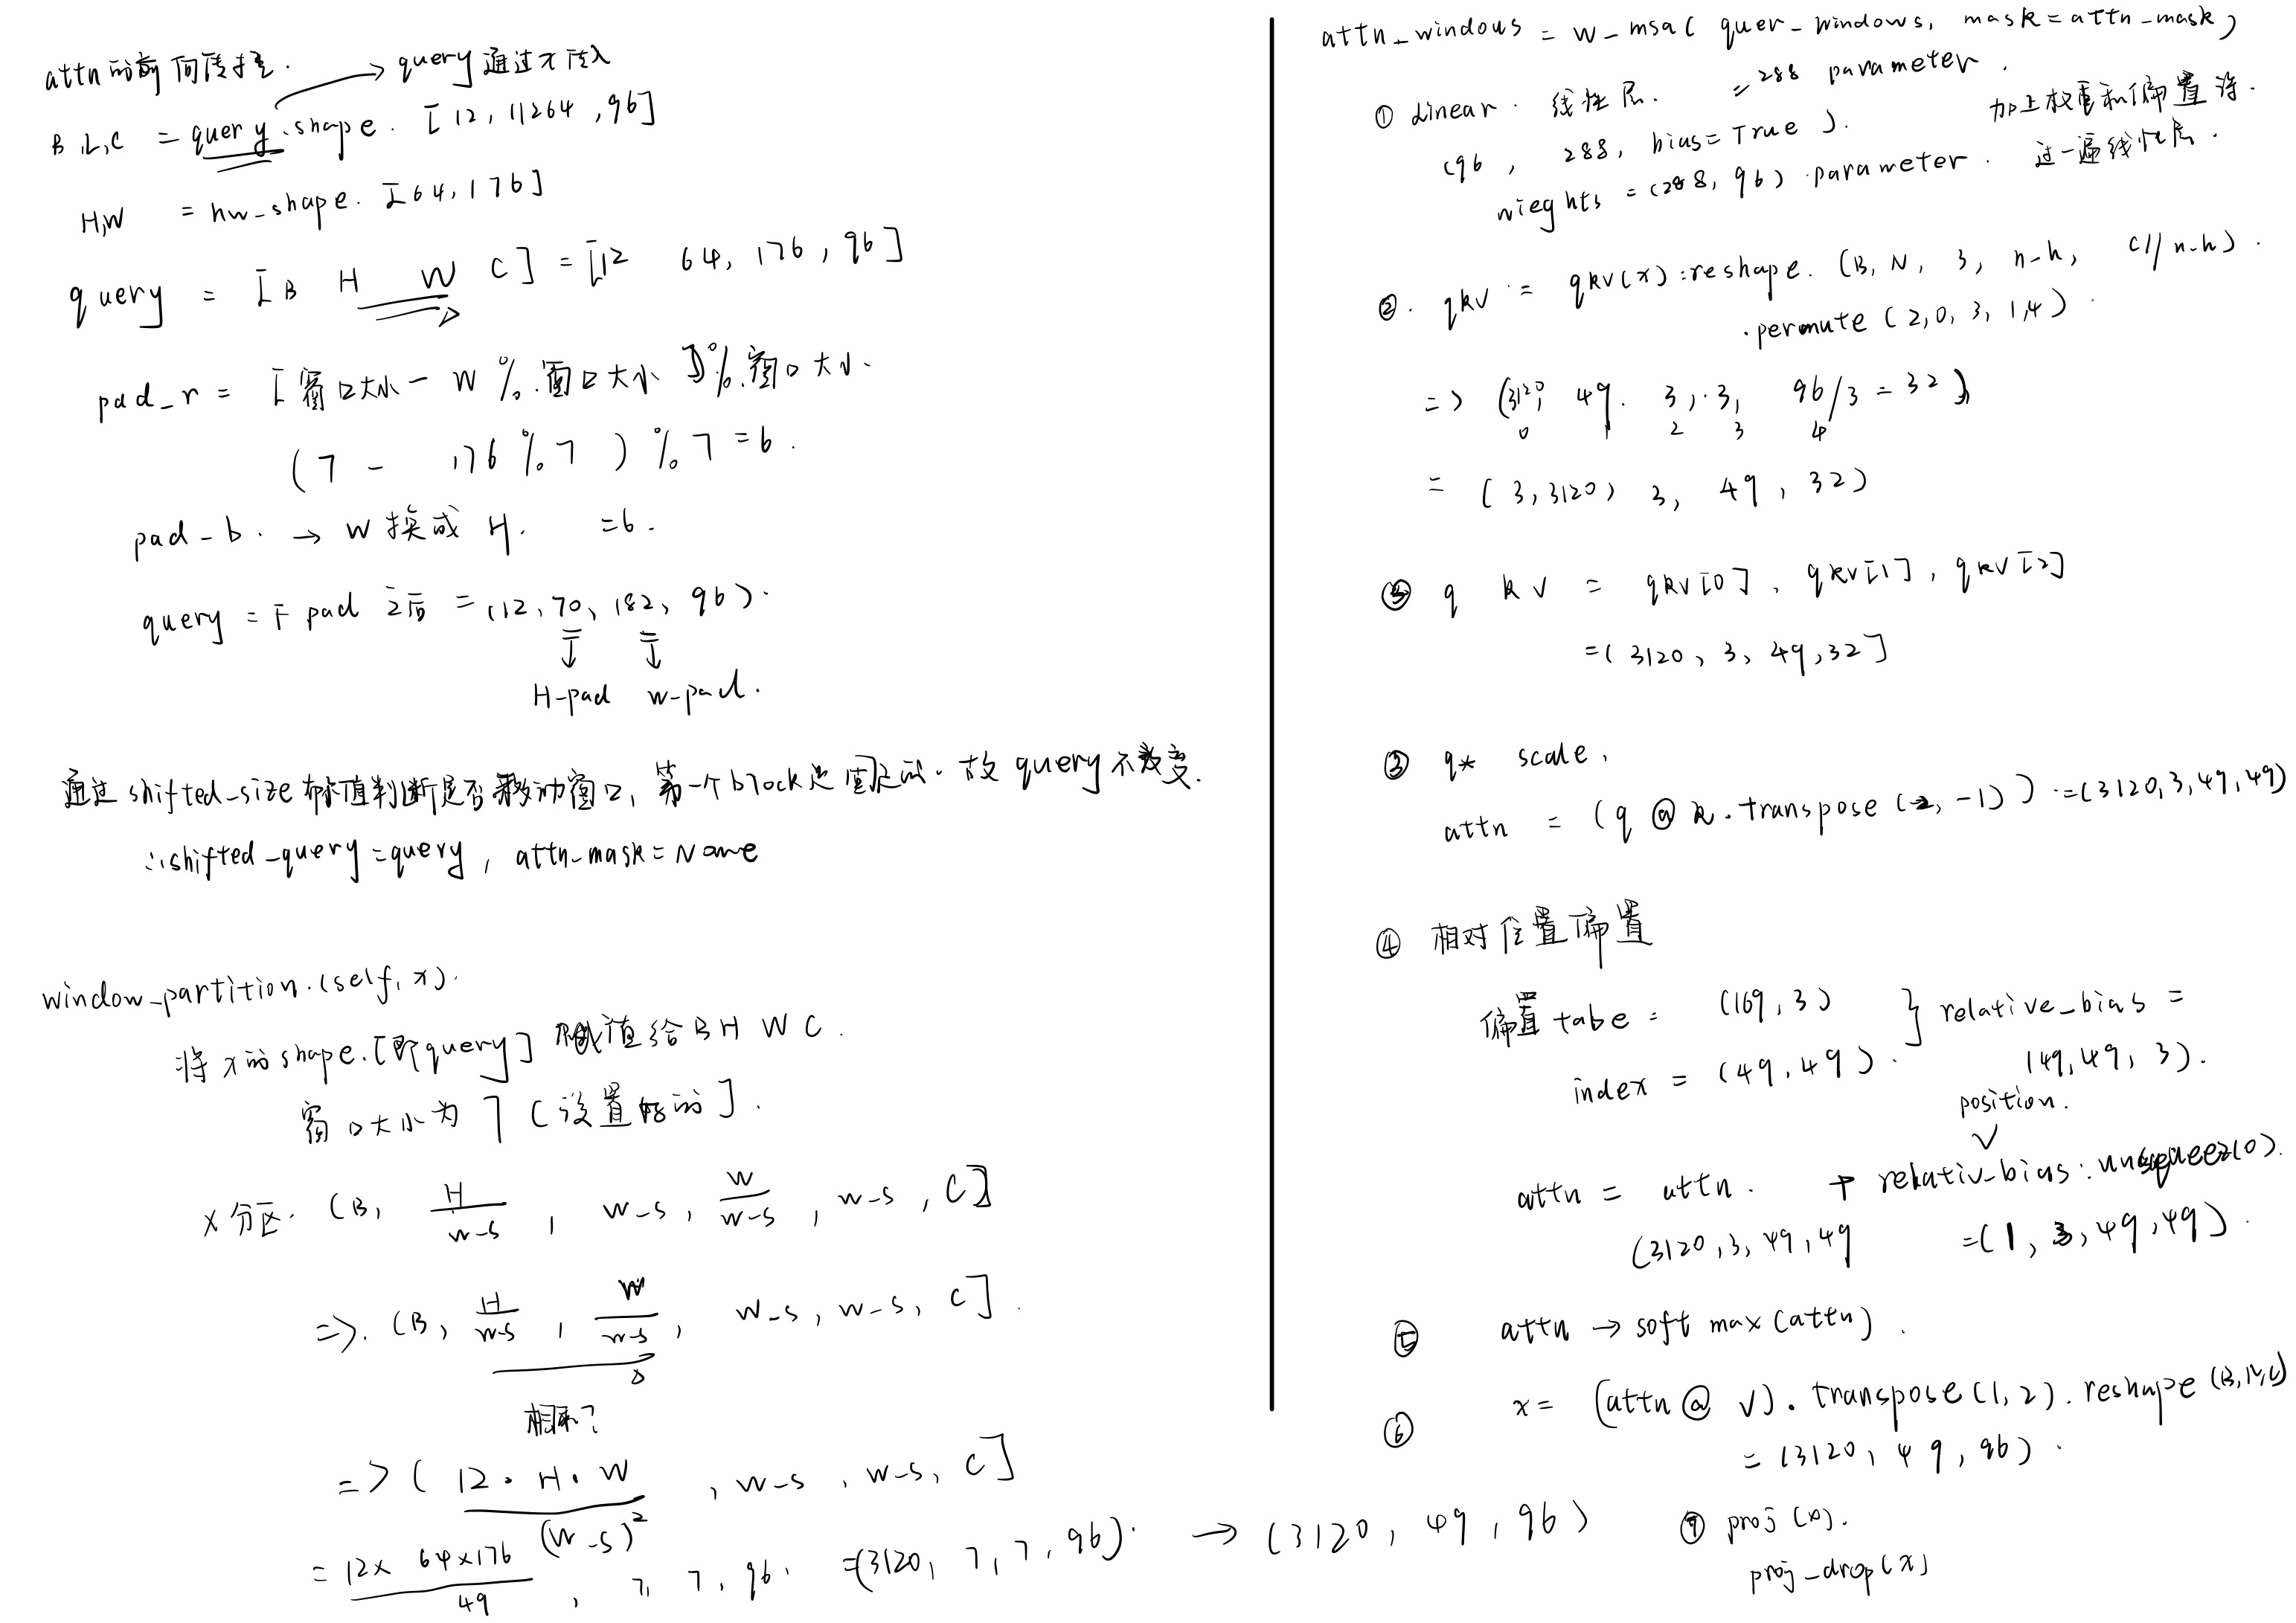 attn的前向传播.
→ query通过x传入
B,L,C = query.shape. [12, 11264, 96]
H,W = hw_shape. [64, 176]
query = [B H W C] = [12 64, 176, 96]
pad_r = [窗口大小 - W %.窗口大小]%.窗口大小.
(7 - 176 % 7 ) % 7 = 6.
pad-b. → W换成 H. =6.
query = F pad 之后 = (12, 70, 182, 96).
H-pad w-pad.
通过 shifted_size 的值判断是否移动窗口, 第一个block是固定的. 故 query 不改变.
∴shifted-query=query, attn-mask=None
window-partition.(self, x).
将x的shape.[即query] 赋值给 B H W C.
窗口大小为 7 [设置好的].
x分区. (B, H/w-s, w-s, W/w-s, w-s, C]
=>. (B, H/w-s, W/w-s, w-s, w-s, C].
相乘?
=> ( 12·H·W/(w-s)², w-s, w-s, C]
= 12x 64x176/49, 7, 7, 96. =(3120, 7, 7, 96). → (3120, 49, 96)
attn_windows = w_msa( quer_windows, mask=attn_mask)
① Linear. 线性层. = 288 parameter.
(96, 288, bias=True). 加上权重和偏置等.
wieghts = (288, 96) .parameter. 过一遍线性层.
②. qkv = qkv(x).reshape. (B, N, 3, n-h, C//n-h).
.permute (2,0,3,1,4).
=> (3120, 49. 3, 3, 96/3=32)
0 1 2 3 4
= (3,3120, 3, 49, 32)
③ q k v = qkv[0], qkv[1], qkv[2]
=(3120, 3, 49,32]
③ q* scale.
attn = (q @ k.transpose(-2, -1)) =(3120,3,49,49)
④ 相对位置偏置
偏置tabe = (169, 3) } relative_bias =
index = (49,49). (49,49, 3).
position.
attn = attn. + relativ_bias.unsqueez(0).
(3120,3,49,49 =(1, 3, 49,49).
⑤ attn → soft max(attn).
⑥ x = (attn @ V).transpose(1,2).reshape(B,N,C)
= (3120, 49, 96).
⑦ proj(x).
proj_drop(x)